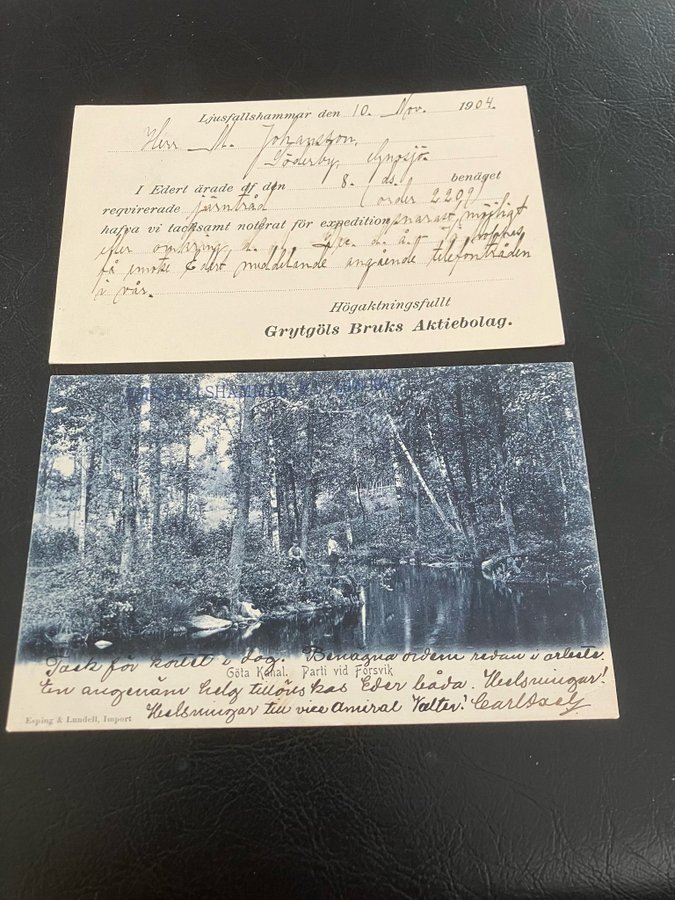 Ljusfallshammar den 10. Nov. 1904.
Herr M. Johansson,
Söderby,
I Edert ärade af den 8. ds. benäget
reqvirerade järntråd (order 2209)
hafva vi tacksamt noterat för expedition snarast möjligt
efter omkring d. å.
få emotse Edert meddelande angående telefontråden
i vår.
Högaktningsfullt
Grytgöls Bruks Aktiebolag.
Tack för kortet i dag. Benägna ordern redan i arbete.
Göta Kanal. Parti vid Forsvik
En angenäm helg tillönskas Eder båda. Helsningar!
Helsningar till vice Amiral Valter!
Esping & Lundell, Import